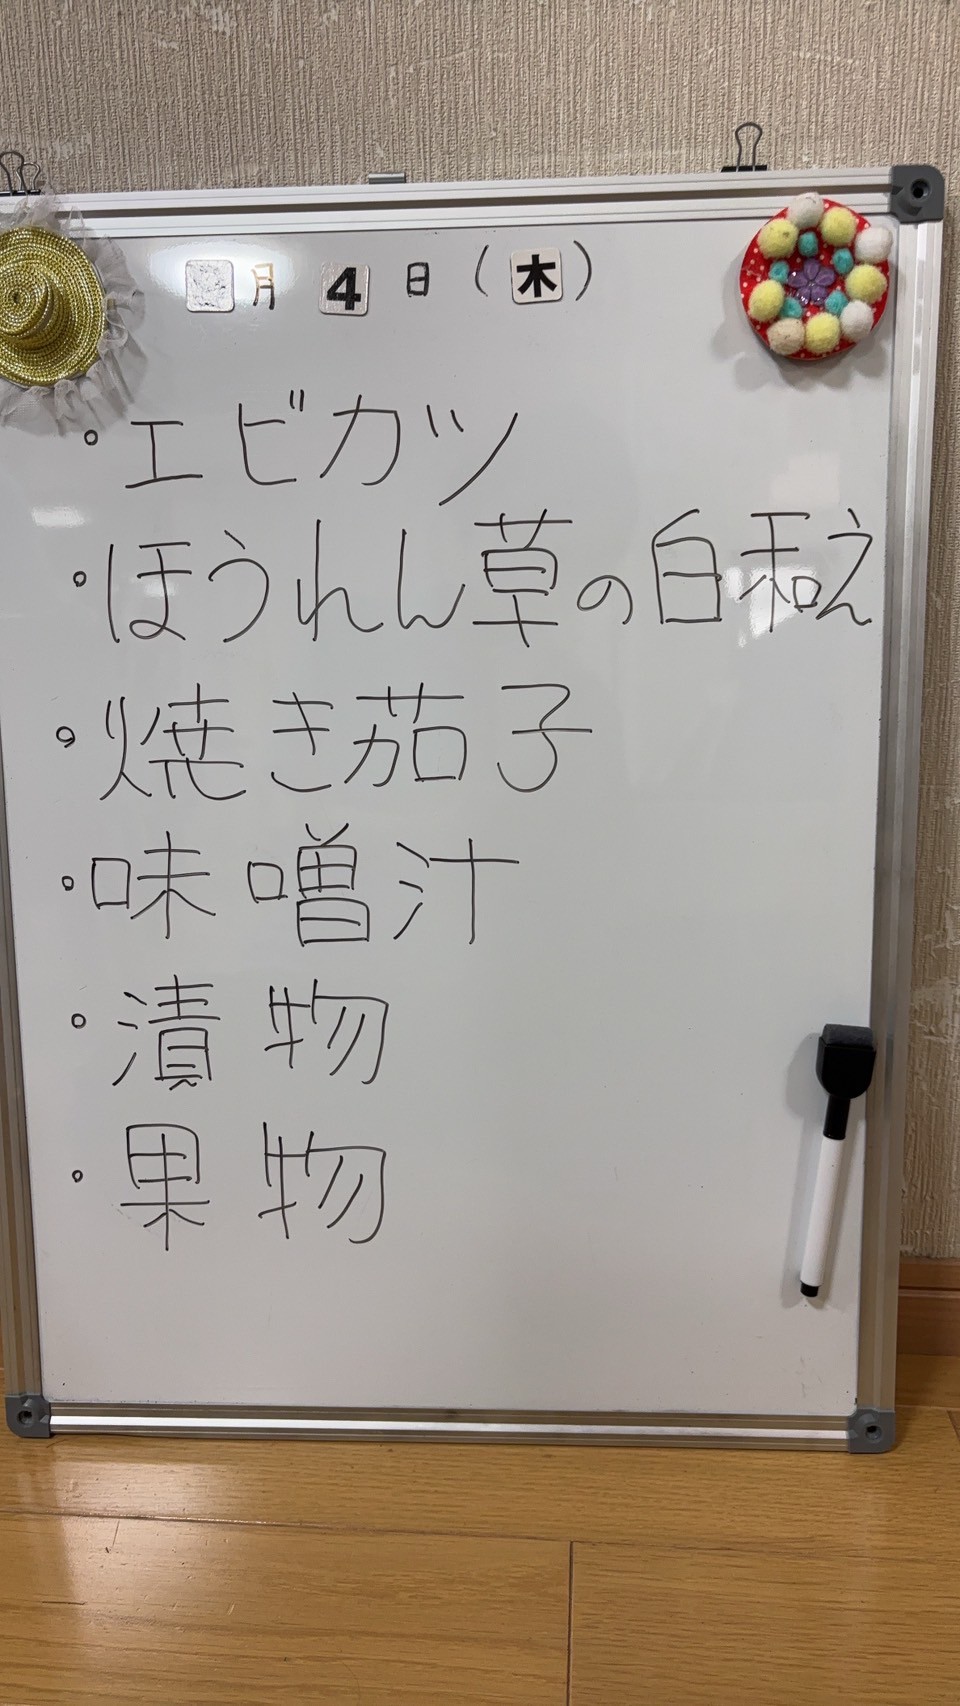 月 4 日 (木)
・エビカツ
・ほうれん草の白和え
・焼き茄子
・味噌汁
・漬物
・果物